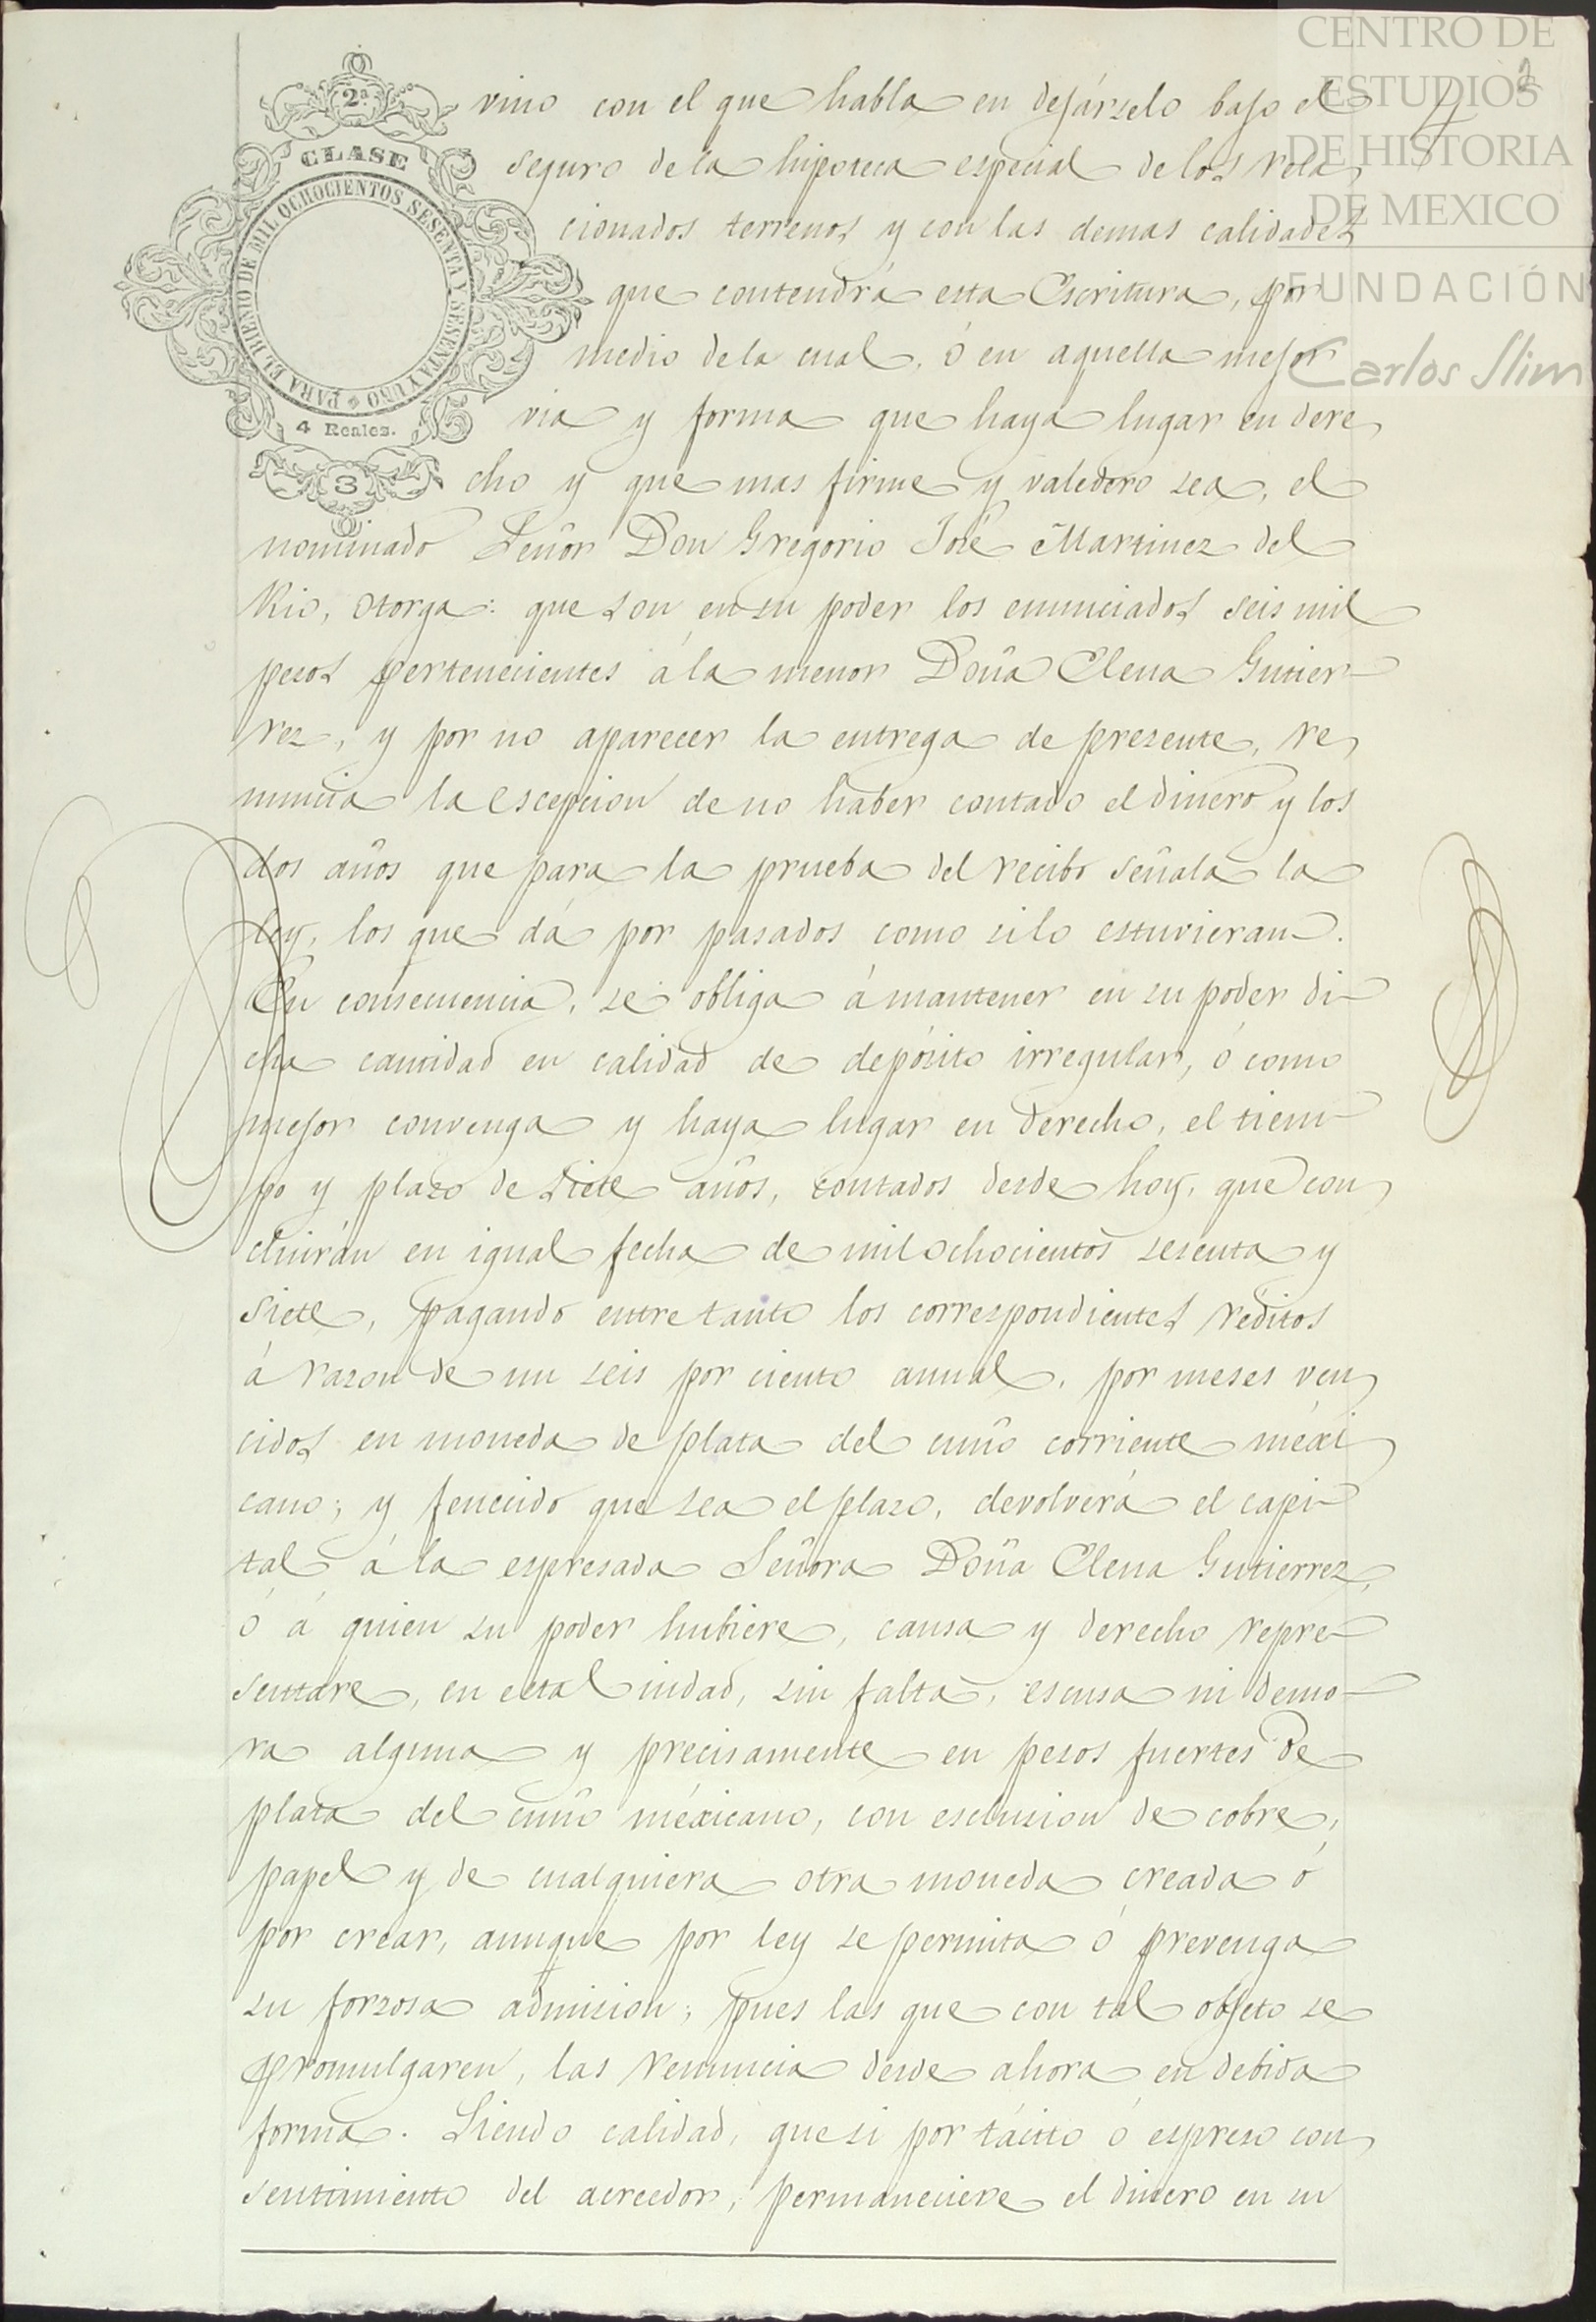 CENTRO DE
ESTUDIOS
DE HISTORIA
DE MEXICO
FUNDACIÓN
Carlos Slim
2ª
CLASE
PARA EL BIENIO DE MIL OCHOCIENTOS SESENTA Y SESENTA Y UNO
4 Reales.
3
4
vino con el que habla en dejárselo bajo el
seguro de la hipoteca especial de los rela
cionados terrenos y con las demas calidades
que contendrá esta Escritura, por
medio de la cual, ó en aquella mejor
via y forma que haya lugar en dere
cho y que mas firme y valedero sea, el
nominado Señor Don Gregorio José Martinez del
Rio, otorga: que son en su poder los enunciados seis mil
pesos pertenecientes á la menor Doña Elena Gutier-
rez, y por no aparecer la entrega de presente, re
nuncia la escepcion de no haber contado el dinero y los
dos años que para la prueba del recibo señala la
ley, los que dá por pasados como si lo estuvieran.
En consecuencia, se obliga á mantener en su poder di-
cha cantidad en calidad de depósito irregular, ó como
mejor convenga y haya lugar en derecho, el tiem-
po y plazo de siete años, contados desde hoy, que con
cluirán en igual fecha de mil ochocientos sesenta y
siete, pagando entre tanto los correspondientes réditos
á razon de un seis por ciento anual, por meses ven
cidos en moneda de plata del cuño corriente méxi
cano; y fenecido que sea el plazo, devolverá el capi-
tal á la espresada Señora Doña Elena Gutierrez,
ó á quien su poder hubiere, causa y derecho repre-
sentare, en esta Ciudad, sin falta, escusa ni demo-
ra alguna y precisamente en pesos fuertes de
plata del cuño méxicano, con esclusion de cobre,
papel y de cualquiera otra moneda creada ó
por crear, aunque por ley se permita ó prevenga
su forzosa admision; pues las que con tal objeto se
promulgaren, las renuncia desde ahora en debida
forma. Siendo calidad, que si por tácito ó espreso con
sentimiento del acreedor, permaneciere el dinero en su